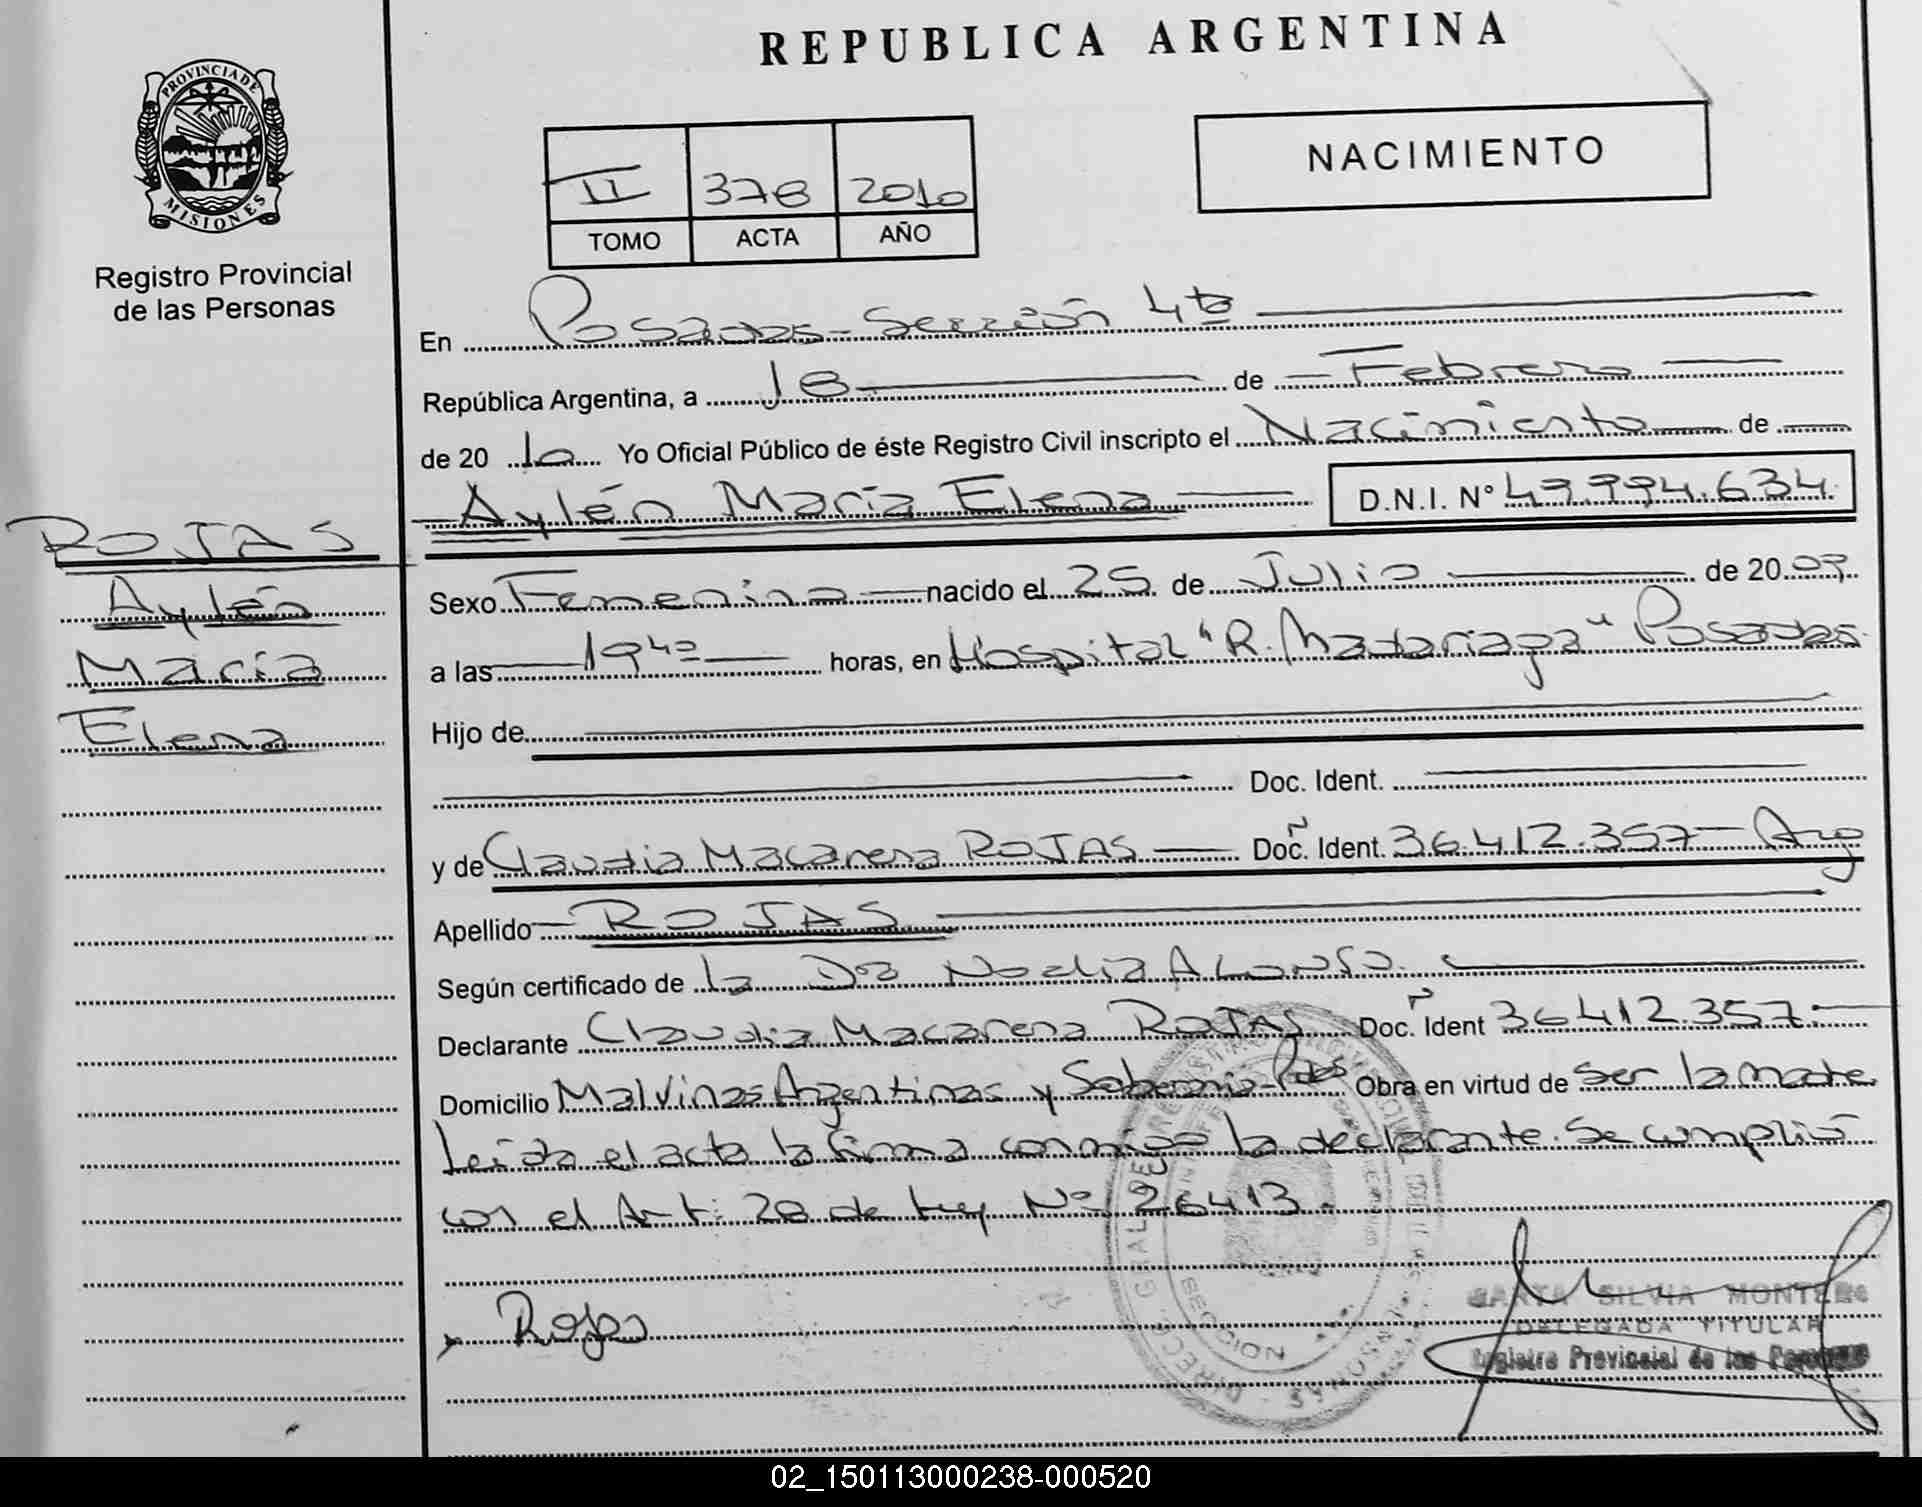 PROVINCIA DE
MISIONES
Registro Provincial
de las Personas
ROJAS
Aylén
María
Elena
REPUBLICA ARGENTINA
II 378 2010
TOMO ACTA AÑO
NACIMIENTO
En Posadas - Sección 4ta
República Argentina, a 18 de Febrero
de 20 10 Yo Oficial Público de éste Registro Civil inscripto el Nacimiento de
Aylén María Elena D.N.I. N° 49.994.634
Sexo Femenino nacido el 25 de Julio de 20 09
a las 19 40 horas, en Hospital "R. Madariaga" Posadas.
Hijo de
Doc. Ident.
y de Claudia Macarena ROJAS Doc. Ident. 36.412.357 - Arg
Apellido ROJAS
Según certificado de la Dra Noelia Alonso.
Declarante Claudia Macarena ROJAS Doc. Ident 36412.357.-
Domicilio Malvinas Argentinas y Soberanía - Pdas Obra en virtud de ser la madre
Leída el acta la firma conmigo la declarante. Se cumplió
con el Art: 28 de Ley Nº 26413.
Rojas
SILVIA MONTERO
DELEGADA TITULAR
Registro Provincial de las Personas
02_150113000238-000520